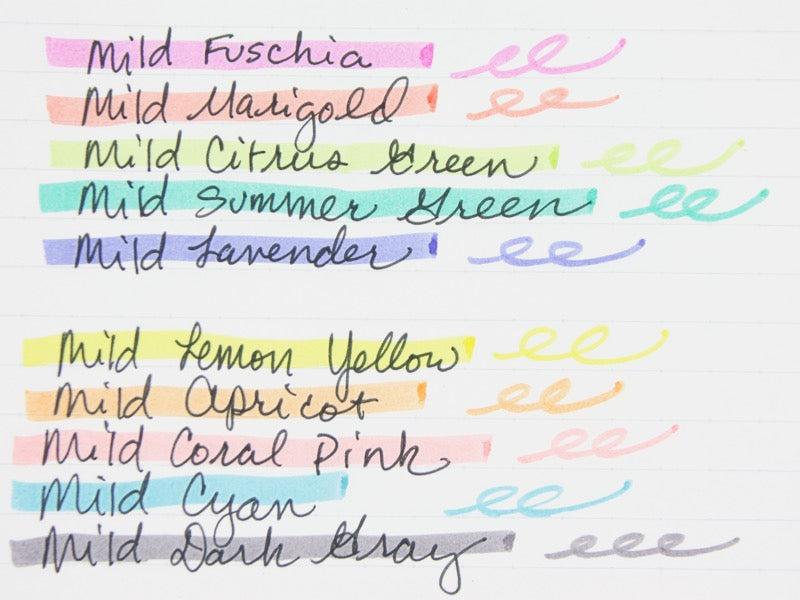 Mild Fuschia
Mild Marigold
Mild Citrus Green
Mild Summer Green
Mild Lavender
Mild Lemon Yellow
Mild Apricot
Mild Coral Pink
Mild Cyan
Mild Dark Gray